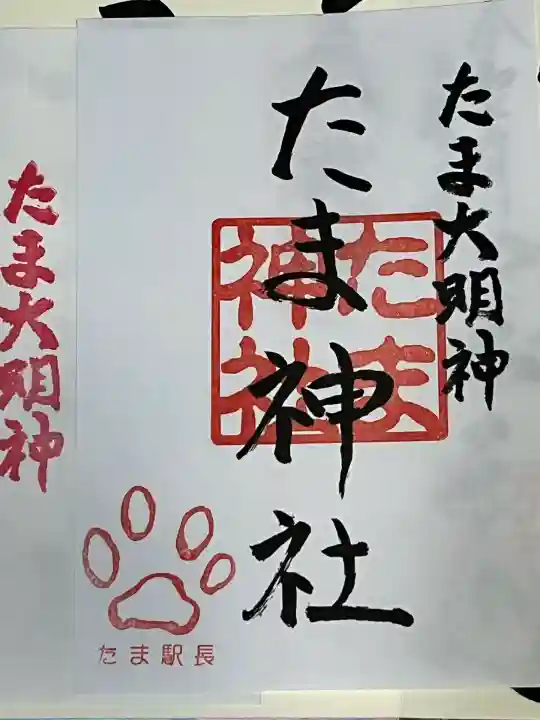 たま大明神
たま神社
たま
神社
たま駅長
たま大明神